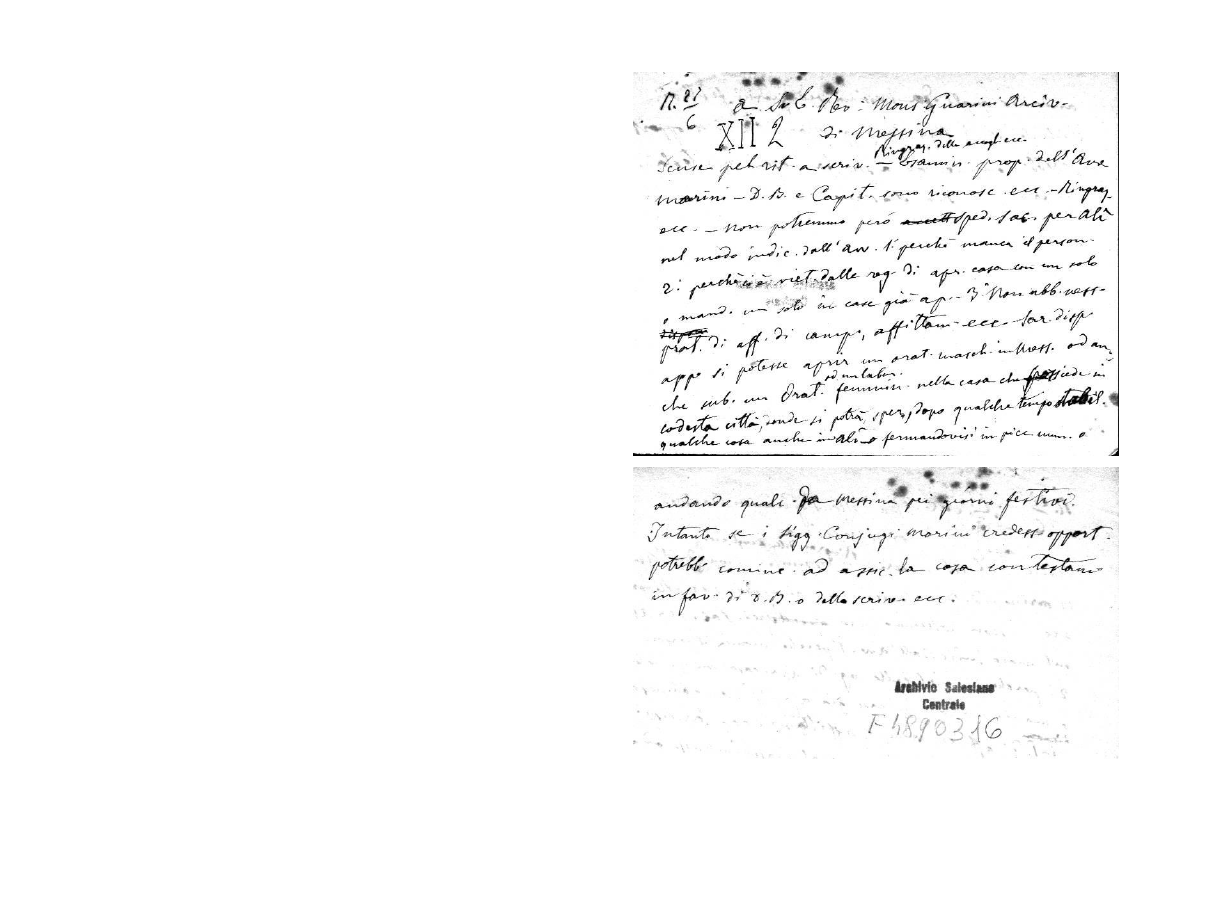 R. 27/6 a S. E. Rev. Mons Guarini Arciv.
XII 2 di Messina
Ringraz. della accogl. ecc.
Scuse pel rit. a scriv. — Esamin. prop. dell'Avv
Marini — D. B. e Capit. sono riconosc. ecc. — Ringraz.
ecc. — Non potremmo però sped. Sac. per Alì
nel modo indic. dall'Avv. 1° perchè manca il person.
2° perchè ci è viet. dalle reg. di apr. casa con un solo
o mand. un solo in case già ap. — 3° Non abb. ness.
prat. di aff. di campi, affittam. ecc. Sar. disp
appe si potesse aprir un orat. masch. in Mess. od an
od un labor.
che sub. un Orat. femmin. nella casa che possiede in
codesta città, onde si potrà, spero, dopo qualche tempo stabil.
qualche cosa anche in Alì o fermandovisi in picc. num. o
andando quals. da Messina pei giorni festivi.
Intanto se i Sigg. Conjugi Marini credess. opport.
potrebb. cominc. ad assic. la cosa con testam
in fav. di D. B. o dello scriv. ecc.
Archivio Salesiano
Centrale
F4890316